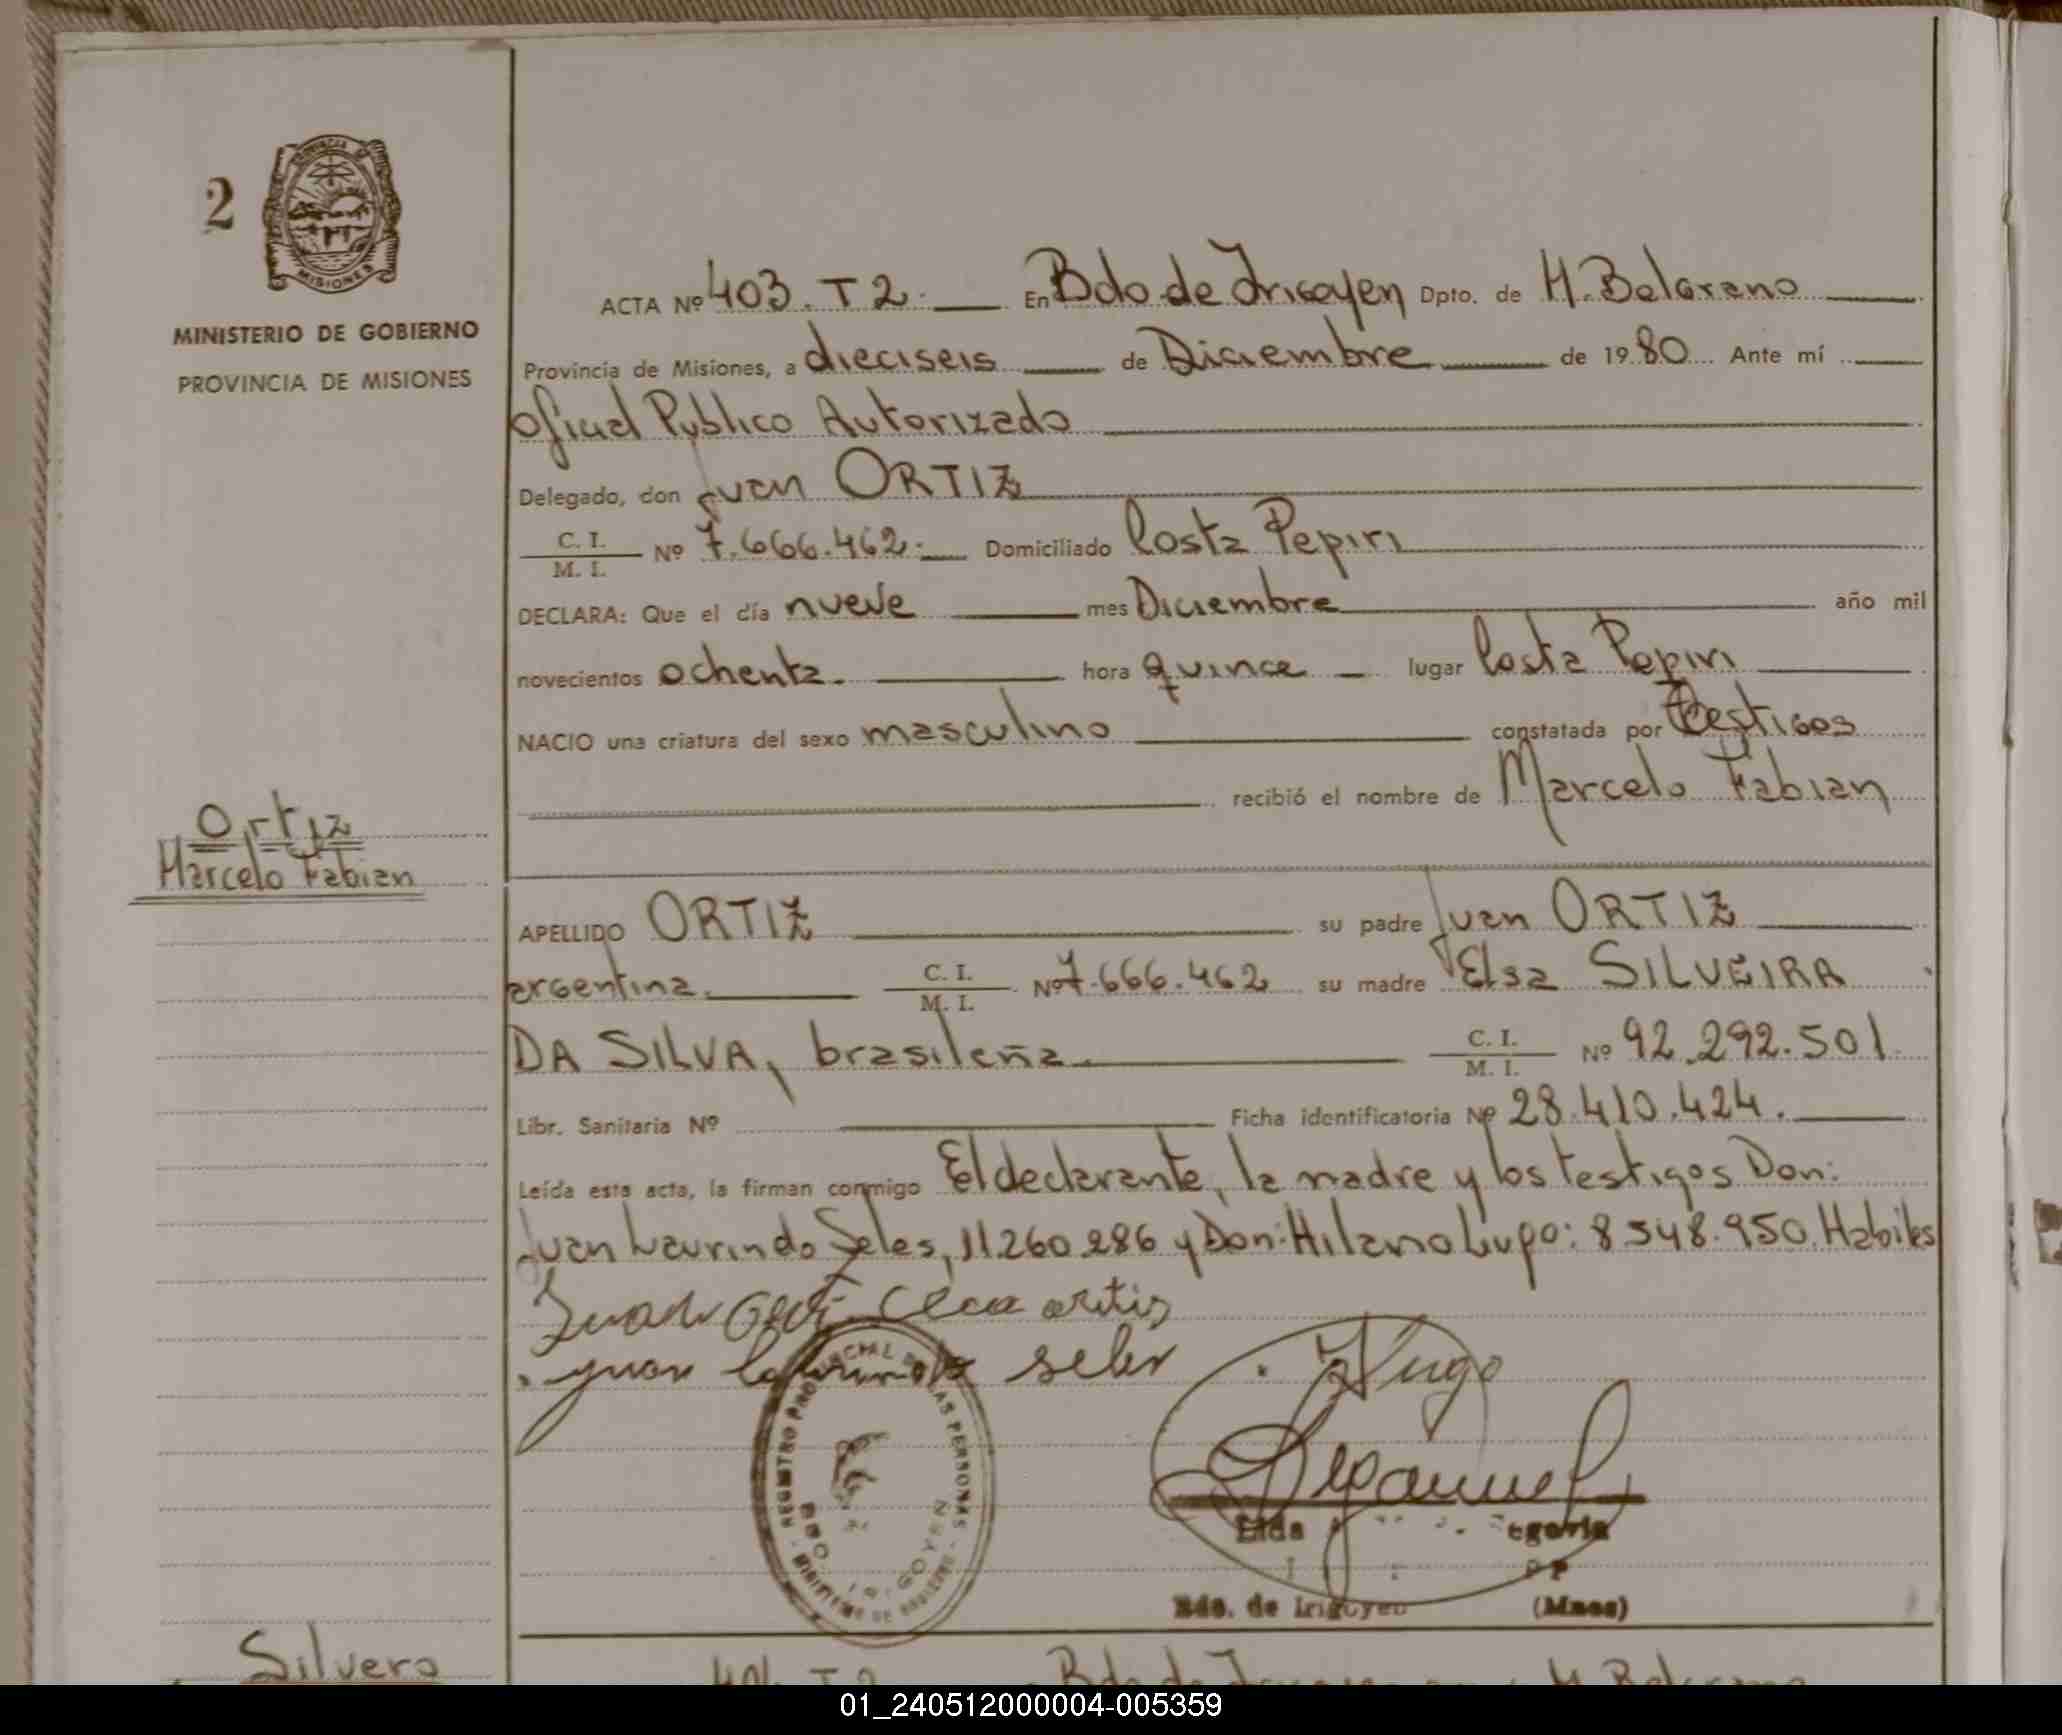 2
PROVINCIA DE
MISIONES
MINISTERIO DE GOBIERNO
PROVINCIA DE MISIONES
ACTA Nº 403. T 2. En Bdo de Irigoyen Dpto. de M. Belgrano
Provincia de Misiones, a dieciseis de Diciembre de 1980 Ante mí
Oficial Publico Autorizado
Delegado, don Juan ORTIZ
C. I.
M. I. Nº 7.666.462. Domiciliado Costa Pepiri
DECLARA: Que el día nueve mes Diciembre año mil
novecientos ochenta. hora quince lugar Costa Pepiri
NACIO una criatura del sexo masculino constatada por Testigos
recibió el nombre de Marcelo Fabian
Ortiz
Marcelo Fabian
APELLIDO ORTIZ su padre Juan ORTIZ
argentina. C. I.
M. I. Nº 7.666.462 su madre Elsa SILVEIRA
DA SILVA, brasileña. C. I.
M. I. Nº 92.292.501
Libr. Sanitaria Nº Ficha identificatoria Nº 28.410.424.
Leída esta acta, la firman conmigo El declarante, la madre y los testigos Don:
Juan Laurindo Seles, 11.260.286 y Don: Hilario Lupo: 8.548.950. Habiles
REGISTRO PROVINCIAL DE LAS PERSONAS
BDO. IRIGOYEN
Elda
Bdo. de Irigoyen (Mnes)
Silvero
404 T 2 Bdo de Irigoyen M Belgrano
01_240512000004-005359